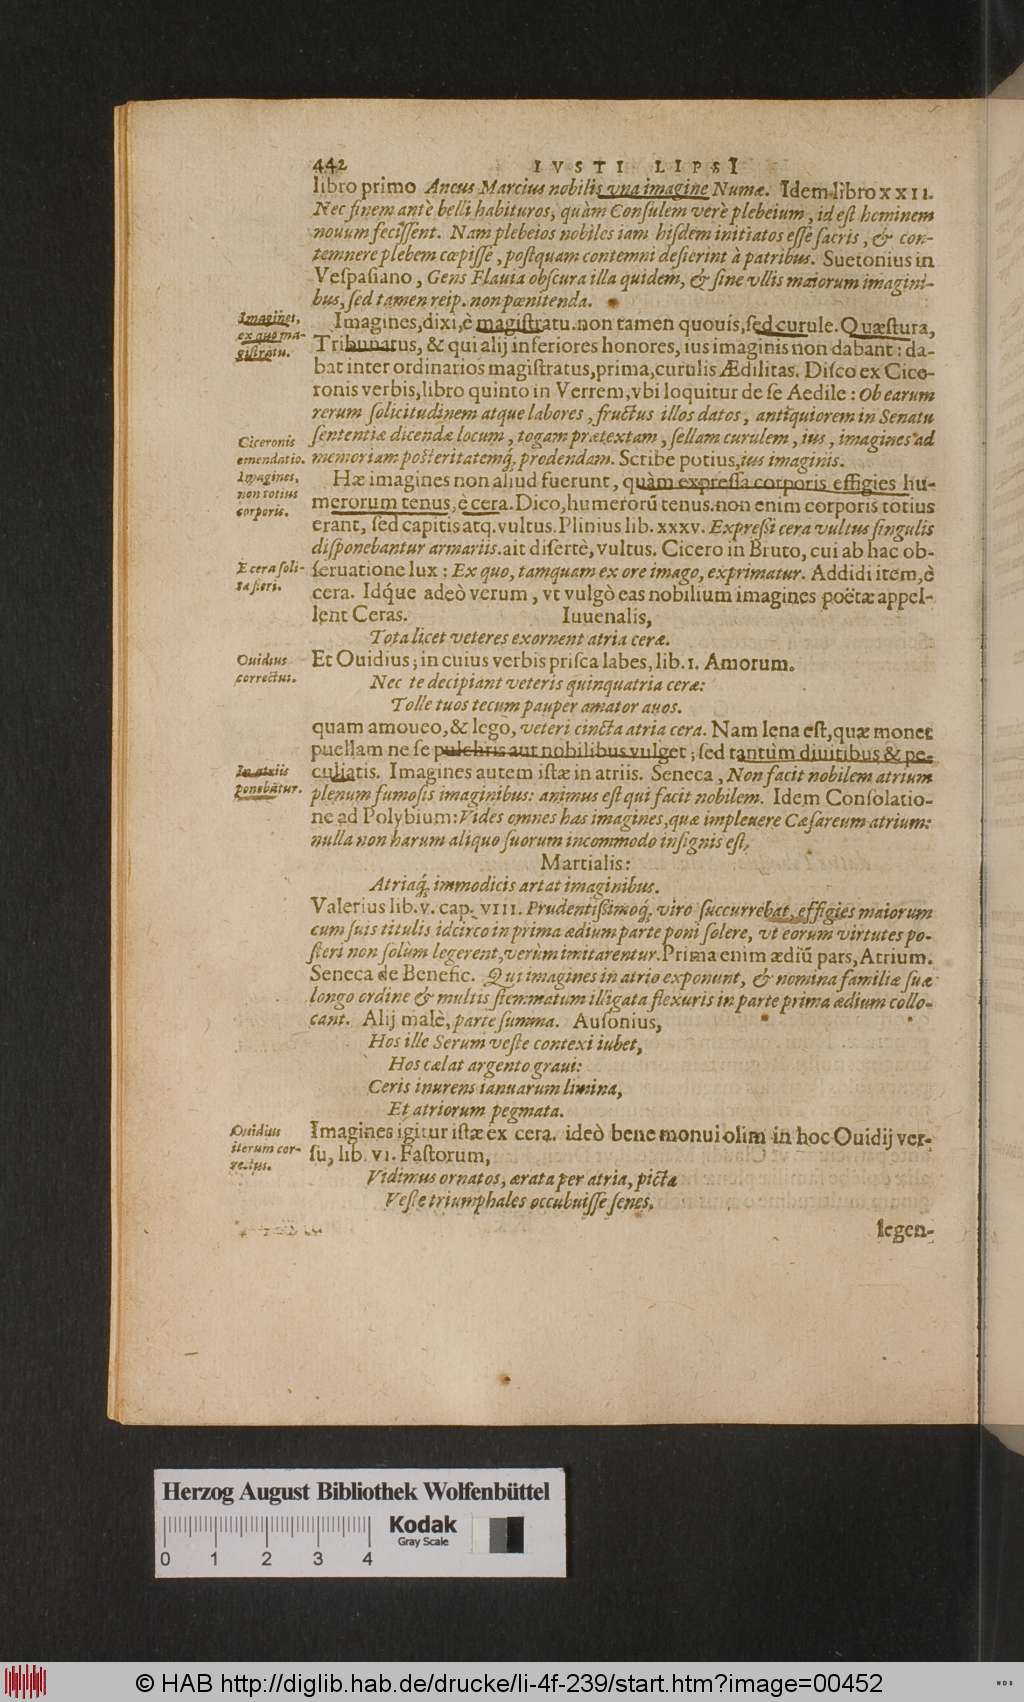 442 IVSTI LIPSI
libro primo Ancus Marcius nobilis vna imagine Numæ. Idem libro XXII.
Nec finem antè belli habituros, quàm Consulem verè plebeium, id est hominem
nouum fecissent. Nam plebeios nobiles iam hisdem initiatos esse sacris, & con-
temnere plebem cœpisse, postquam contemni desierint à patribus. Suetonius in
Vespasiano, Gens Flauia obscura illa quidem, & sine vllis maiorum imagini-
bus, sed tamen reip. non pœnitenda.
Imagines,
ex quo ma-
gistratu.
Imagines, dixi, è magistratu. non tamen quouis, sed curule. Quæstura,
Tribunatus, & qui alij inferiores honores, ius imaginis non dabant: da-
bat inter ordinarios magistratus, prima, curulis Ædilitas. Disco ex Cice-
ronis verbis, libro quinto in Verrem, vbi loquitur de se Aedile: Ob earum
rerum solicitudinem atque labores, fructus illos datos, antiquiorem in Senatu
sententiæ dicendæ locum, togam prætextam, sellam curulem, ius, imagines ad
memoriam posteritatemq́; prodendam. Scribe potius, ius imaginis.
Ciceronis
emendatio.
Imagines,
non totius
corporis.
Hæ imagines non aliud fuerunt, quàm expressa corporis effigies hu-
merorum tenus, è cera. Dico, humerorũ tenus. non enim corporis totius
erant, sed capitis atq. vultus. Plinius lib. XXXV. Expressi cera vultus singulis
disponebantur armariis. ait disertè, vultus. Cicero in Bruto, cui ab hac ob-
seruatione lux: Ex quo, tamquam ex ore imago, exprimatur. Addidi item, è
cera. Idq́ue adeò verum, vt vulgò eas nobilium imagines poëtæ appel-
lent Ceras. Iuuenalis,
E cera soli-
ta fieri.
Tota licet veteres exornent atria ceræ.
Et Ouidius; in cuius verbis prisca labes, lib. 1. Amorum.
Ouidius
correctus.
Nec te decipiant veteris quinquatria ceræ:
Tolle tuos tecum pauper amator auos.
quam amoueo, & legò, veteri cincta atria cera. Nam lena est, quæ monet
puellam ne se pulchris aut nobilibus vulget; sed tantùm diuitibus & pe-
culiatis. Imagines autem istæ in atriis. Seneca, Non facit nobilem atrium
plenum fumosis imaginibus: animus est qui facit nobilem. Idem Consolatio-
ne ad Polybium: Vides omnes has imagines, quæ impleuere Cæsareum atrium:
nulla non harum aliquo suorum incommodo insignis est,
In atriis
ponebātur.
Martialis:
Atriaq́; immodicis artat imaginibus.
Valerius lib. V. cap. VIII. Prudentissimoq́; viro succurrebat, effigies maiorum
cum suis titulis idcirco in prima ædium parte poni solere, vt eorum virtutes po-
steri non solùm legerent, verùm imitarentur. Prima enim ædiũ pars, Atrium.
Seneca de Benefic. Qui imagines in atrio exponunt, & nomina familiæ suæ
longo ordine & multis stemmatum illigata flexuris in parte prima ædium collo-
cant. Alij malè, parte summa. Ausonius,
Hos ille Serum veste contexi iubet,
Hos cælat argento graui:
Ceris inurens ianuarum limina,
Et atriorum pegmata.
Ouidius
iterum cor-
rectus.
Imagines igitur istæ ex cera. ideò bene monui olim in hoc Ouidij ver-
su, lib. VI. Fastorum,
Vidimus ornatos, ærata per atria, picta
Veste triumphales occubuisse senes.
legen-
Herzog August Bibliothek Wolfenbüttel
Kodak
Gray Scale
0 1 2 3 4
© HAB http://diglib.hab.de/drucke/li-4f-239/start.htm?image=00452